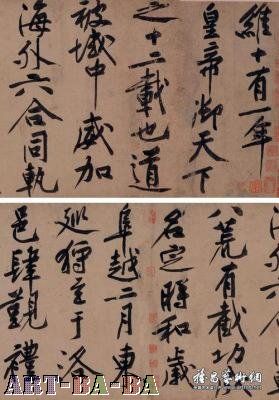 維十有一年
皇帝御天下
之十二載也道
被域中威加
海外六合同軌
八荒有截功
名定時和歲
阜越二月東
巡狩至于洛
邑肆覲禮
ART-BA-BA
雅昌藝術網